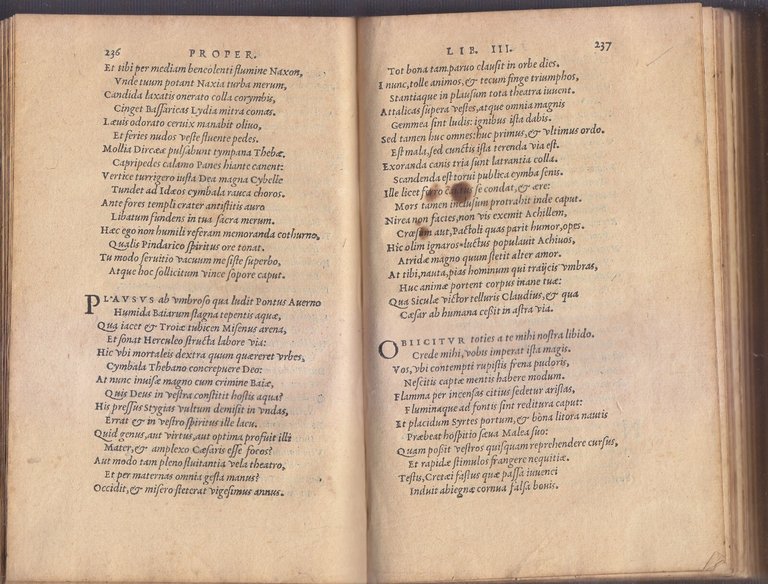 236 PROPER.
Et tibi per mediam bencolenti flumine Naxon,
Vnde tuum potant Naxia turba merum,
Candida laxatis onerato colla corymbis,
Cinget Bassaricas Lydia mitra comas.
Læuis odorato ceruix manabit oliuo,
Et feries nudos veste fluente pedes.
Mollia Dircææ pulsabunt tympana Thebæ,
Capripedes calamo Panes hiante canent:
Vertice turrigero iuxta Dea magna Cybelle
Tundet ad Idæos cymbala rauca choros.
Ante fores templi crater antistitis auro
Libatum fundens in tua sacra merum.
Hæc ego non humili referam memoranda cothurno,
Qualis Pindarico spiritus ore tonat.
Tu modo seruitio vacuum me siste superbo,
Atque hoc sollicitum vince sopore caput.
PLAVSVS ab vmbroso qua ludit Pontus Auerno
Humida Baiarum stagna tepentis aquæ,
Qua iacet & Troiæ tubicen Misenus arena,
Et sonat Herculeo structa labore via:
Hic vbi mortaleis dextra quum quæreret vrbes,
Cymbala Thebano concrepuere Deo:
At nunc inuisæ magno cum crimine Baiæ,
Quis Deus in vestra constitit hostis aqua?
His pressus Stygias vultum demisit in vndas,
Errat & in vestro spiritus ille lacu.
Quid genus, aut virtus, aut optima profuit illi
Mater, & amplexo Cæsaris esse focos?
Aut modo tam pleno fluitantia vela theatro,
Et per maternas omnia gesta manus?
Occidit, & misero steterat vigesimus annus.
LIB. III. 237
Tot bona tam paruo clausit in orbe dies.
I nunc, tolle animos, & tecum finge triumphos,
Stantiaque in plausum tota theatra iuuent.
Attalicas supera vestes, atque omnia magnis
Gemmea sint ludis: ignibus ista dabis.
Sed tamen huc omnes: huc primus, & vltimus ordo.
Est mala, sed cunctis ista terenda via est.
Exoranda canis tria sunt latrantia colla.
Scandenda est torui publica cymba senis.
Ille licet ferro cautus se condat, & ære:
Mors tamen inclusum protrahit inde caput.
Nirea non facies, non vis exemit Achillem,
Crœsum aut, Pactoli quas parit humor, opes.
Hic olim ignaros luctus populauit Achiuos,
Atridæ magno quum stetit alter amor.
At tibi, nauta, pias hominum qui traijcis vmbras,
Huc animæ portent corpus inane tuæ:
Qua Siculæ victor telluris Claudius, & qua
Cæsar ab humana cessit in astra via.
OBIICITVR toties a te mihi nostra libido.
Crede mihi, vobis imperat ista magis.
Vos, vbi contempti rupistis frena pudoris,
Nescitis captæ mentis habere modum.
Flamma per incensas citius sedetur aristas,
Fluminaque ad fontis sint reditura caput:
Et placidum Syrtes portum, & bona litora nautis
Præbeat hospitio sæua Malea suo:
Quam possit vestros quisquam reprehendere cursus,
Et rapidæ stimulos frangere nequitiæ.
Testis, Cretæi fastus quæ passa iuuenci
Induit abiegnæ cornua falsa bouis.